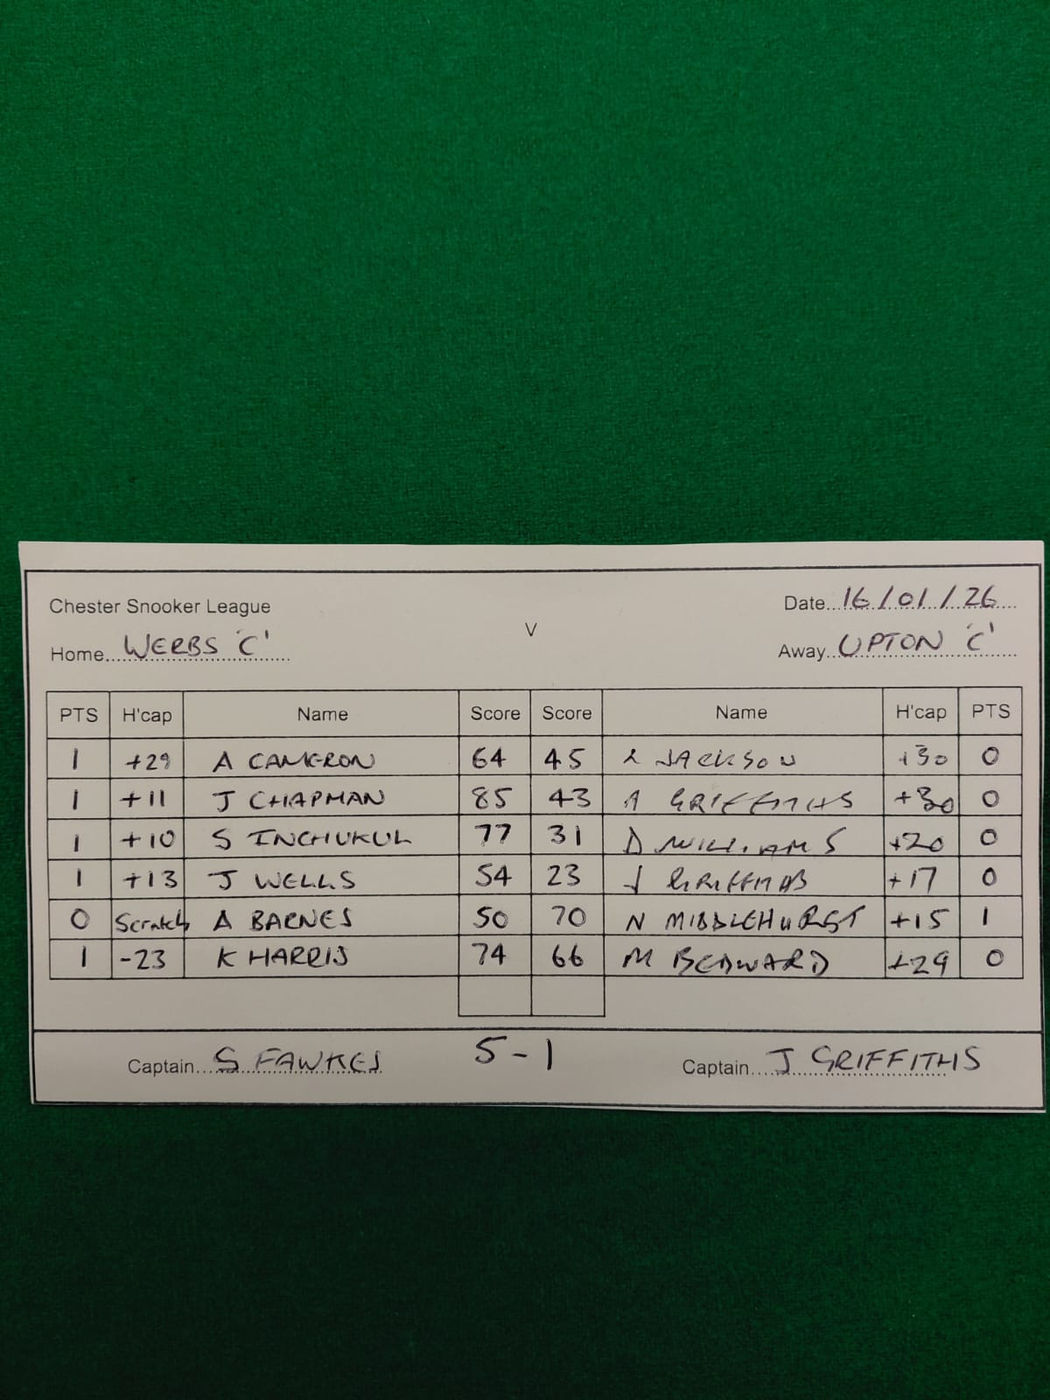 Chester Snooker League
Date 16/01/26
V
Home WERBS 'C'
Away UPTON 'C'
PTS H'cap Name Score Score Name H'cap PTS
1 +29 A CAMERON 64 45 JACKSON +30 0
1 +11 J CHAPMAN 85 43 A GRIFFITHS +30 0
1 +10 S INCHUKUL 77 31 D WILLIAMS +20 0
1 +13 J WELLS 54 23 J GRIFFITHS +17 0
0 Scratch A BARNES 50 70 N MIDDLEHURST +15 1
1 -23 K HARRIS 74 66 M BEDWARD +29 0
Captain S FAWKES 5-1 Captain J GRIFFITHS